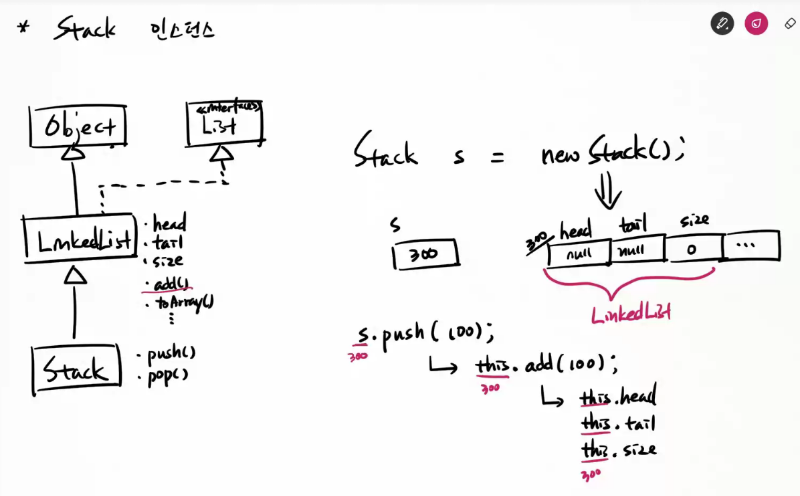 * Stack 인스턴스
Object
<<interface>>
List
LinkedList
· head
· tail
· size
· add()
· toArray()
⋮
Stack
· push()
· pop()
Stack s = new Stack();
s
300
300 head tail size
null null 0 ...
LinkedList
s.push(100);
300
this.add(100);
300
this.head
this.tail
this.size
300